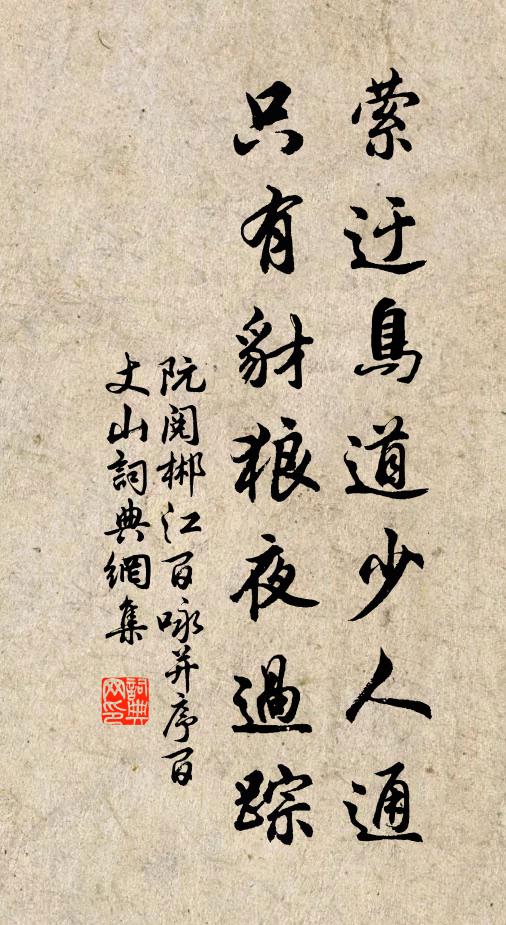 萦迂鳥道少人通
只有豺狼夜過踪
阮阅郴江百咏并序百
丈山詞典網集
詞典網印